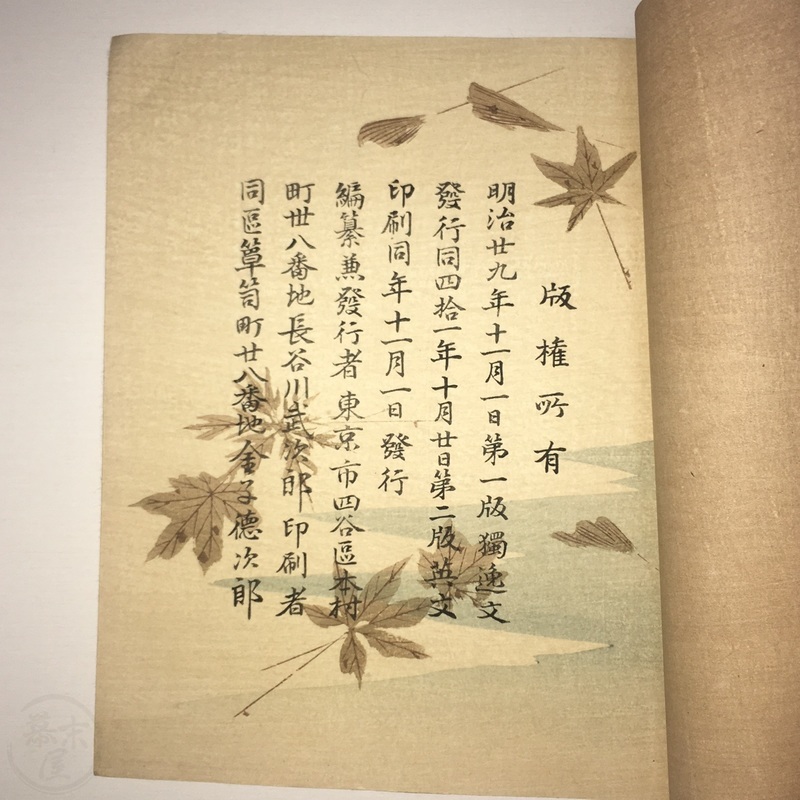 版權所有
明治廿九年十一月一日第一版獨逸文
發行同四拾一年十月廿日第二版英文
印刷同年十一月一日發行
編纂兼發行者東京市四谷區本村
町丗八番地長谷川武次郎印刷者
同區簞笥町廿八番地金子德次郎
幕末屋